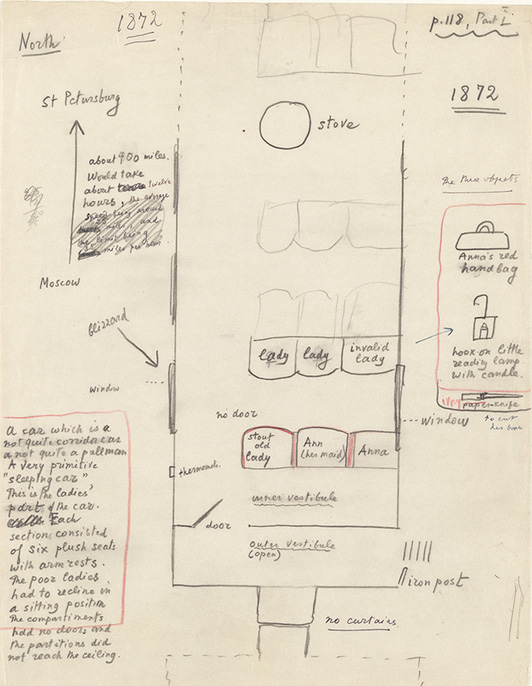 1872
North
p.118, Part I
1872
St Petersburg
stove
about 400 miles.
Would take
about twelve
hours, the average
the three objects
Moscow
Anna's red
handbag
Blizzard
lady
lady
invalid
lady
hook-on little
reading lamp
with candle.
window
ivory
paperknife
to cut
her book
no door
window
stout
old
lady
Ann
(her maid)
Anna
A car which is a
not quite corridor car
a not quite a pullman
A very primitive
"sleeping car"
This is the ladies'
part of the car.
Each
section consisted
of six plush seats
with arm rests.
The poor ladies
had to recline in
a sitting position
the compartments
had no door, and
the partitions did
not reach the ceiling.
thermom.
inner vestibule
door
outer vestibule
(open)
iron post
no curtains